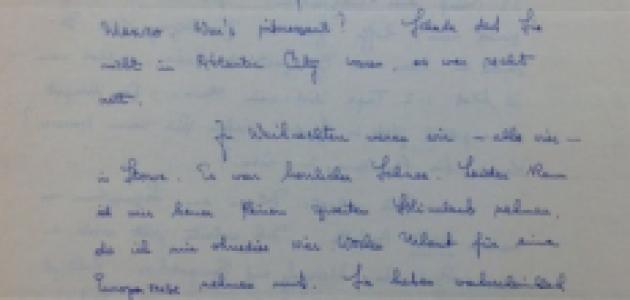 War's interessant? Schade daß Sie
nicht in Atlantic City waren, es war recht
nett.
Zu Weihnachten waren wir – alle vier –
in Stowe. Es war herrlicher Schnee. Leider kann
ich mir keinen zweiten nehmen,
da ich mir ohnedies vier Wochen Urlaub für eine
Europareise nehmen muß. Sie haben